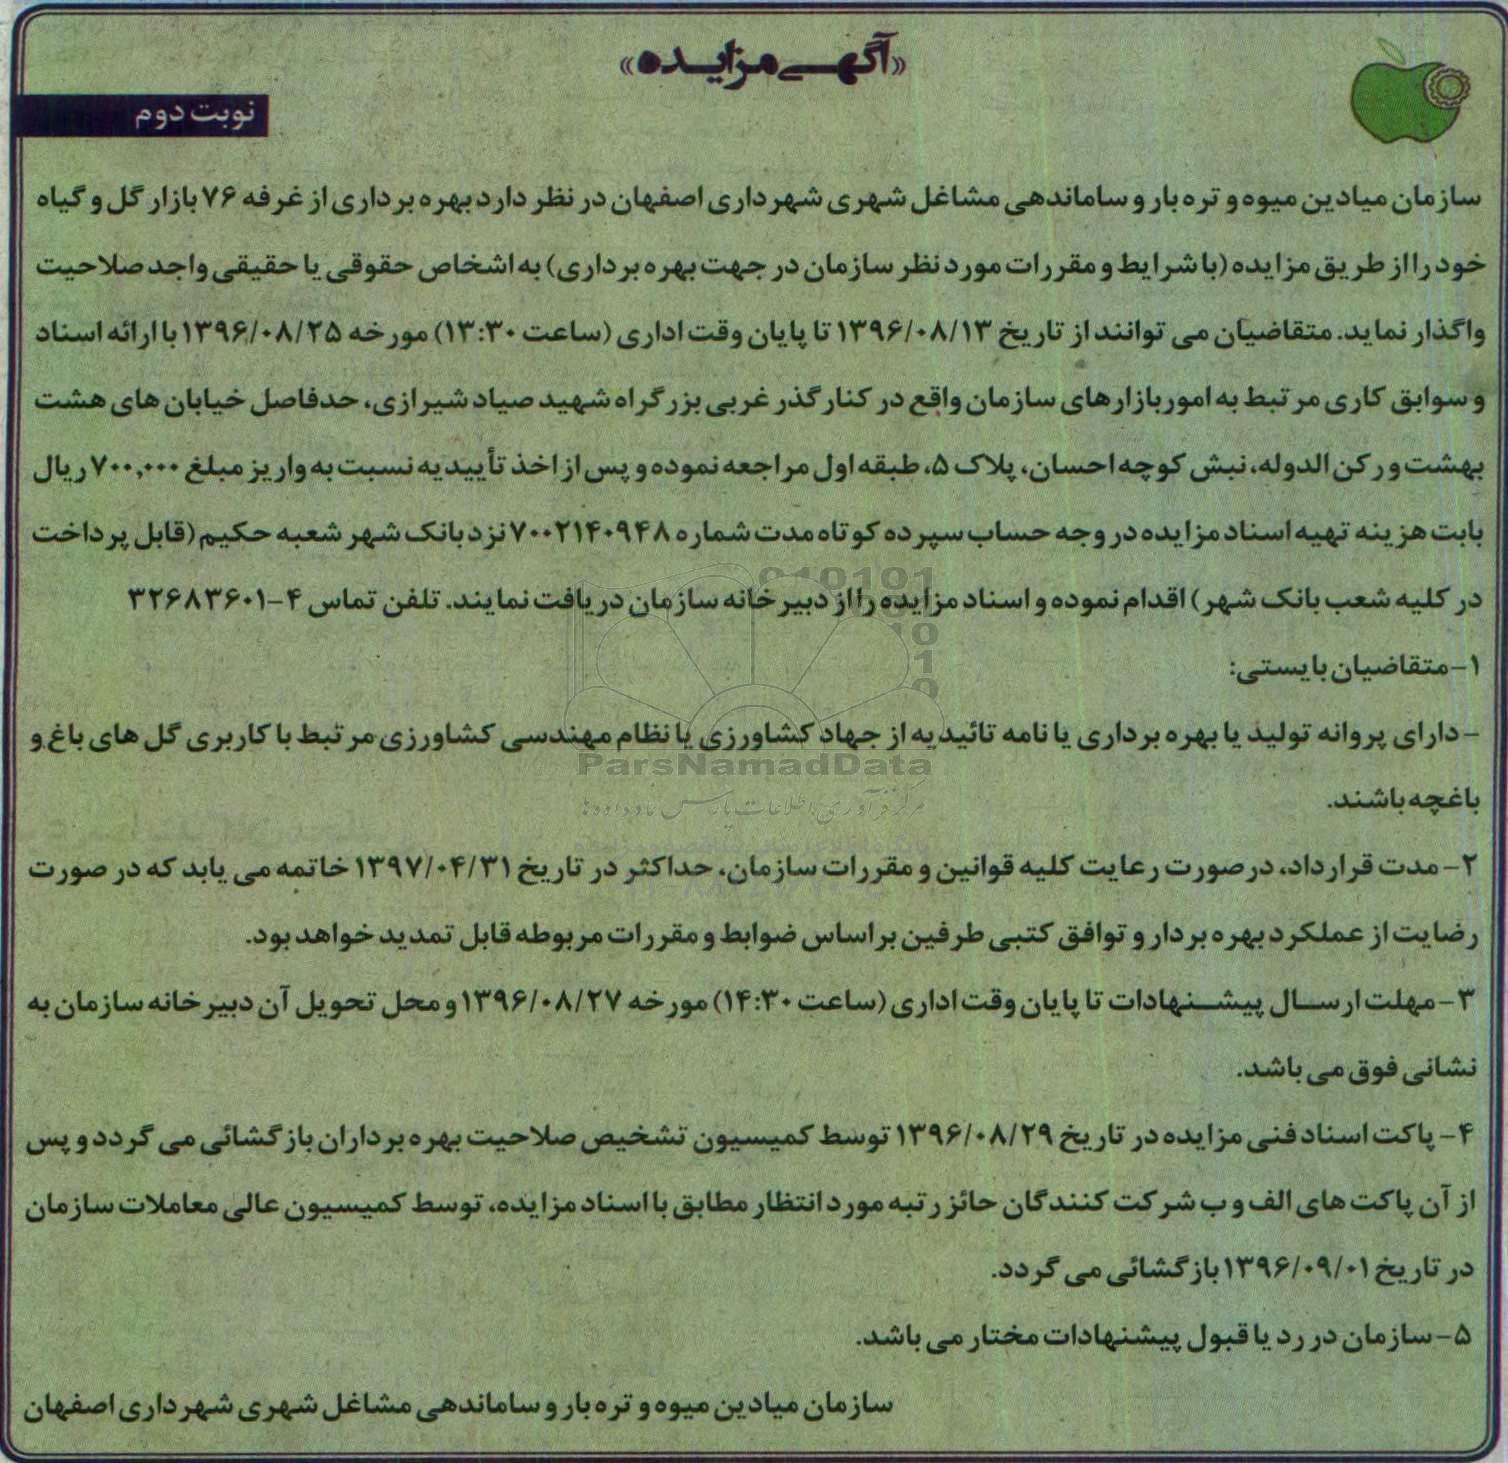 «آگهی مزایده»
نوبت دوم
سازمان میادین میوه و تره بار و ساماندهی مشاغل شهری شهرداری اصفهان در نظر دارد بهره برداری از غرفه ۷۶ بازار گل و گیاه
خود را از طریق مزایده (با شرایط و مقررات مورد نظر سازمان در جهت بهره برداری) به اشخاص حقوقی یا حقیقی واجد صلاحیت
واگذار نماید. متقاضیان می توانند از تاریخ ۱۳۹۶/۰۸/۱۳ تا پایان وقت اداری (ساعت ۱۳:۳۰) مورخه ۱۳۹۶/۰۸/۲۵ با ارائه اسناد
و سوابق کاری مرتبط به امور بازارهای سازمان واقع در کنارگذر غربی بزرگراه شهید صیاد شیرازی، حدفاصل خیابان های هشت
بهشت و رکن الدوله، نبش کوچه احسان، پلاک ۵، طبقه اول مراجعه نموده و پس از اخذ تأییدیه نسبت به واریز مبلغ ۷۰۰,۰۰۰ ریال
بابت هزینه تهیه اسناد مزایده در وجه حساب سپرده کوتاه مدت شماره ۷۰۰۲۱۴۰۹۴۸ نزد بانک شهر شعبه حکیم (قابل پرداخت
در کلیه شعب بانک شهر) اقدام نموده و اسناد مزایده را از دبیرخانه سازمان دریافت نمایند. تلفن تماس ۴-۳۲۶۸۳۶۰۱
۱- متقاضیان بایستی:
- دارای پروانه تولید یا بهره برداری یا نامه تائیدیه از جهاد کشاورزی یا نظام مهندسی کشاورزی مرتبط با کاربری گل های باغ و
باغچه باشند.
۲- مدت قرارداد، درصورت رعایت کلیه قوانین و مقررات سازمان، حداکثر در تاریخ ۱۳۹۷/۰۴/۳۱ خاتمه می یابد که در صورت
رضایت از عملکرد بهره بردار و توافق کتبی طرفین براساس ضوابط و مقررات مربوطه قابل تمدید خواهد بود.
۳- مهلت ارسال پیشنهادات تا پایان وقت اداری (ساعت ۱۴:۳۰) مورخه ۱۳۹۶/۰۸/۲۷ و محل تحویل آن دبیرخانه سازمان به
نشانی فوق می باشد.
۴- پاکت اسناد فنی مزایده در تاریخ ۱۳۹۶/۰۸/۲۹ توسط کمیسیون تشخیص صلاحیت بهره برداران بازگشائی می گردد و پس
از آن پاکت های الف و ب شرکت کنندگان حائز رتبه مورد انتظار مطابق با اسناد مزایده، توسط کمیسیون عالی معاملات سازمان
در تاریخ ۱۳۹۶/۰۹/۰۱ بازگشائی می گردد.
۵- سازمان در رد یا قبول پیشنهادات مختار می باشد.
سازمان میادین میوه و تره بار و ساماندهی مشاغل شهری شهرداری اصفهان
ParsNamadData
مرکز فرآوری اطلاعات پارس نماد داده ها